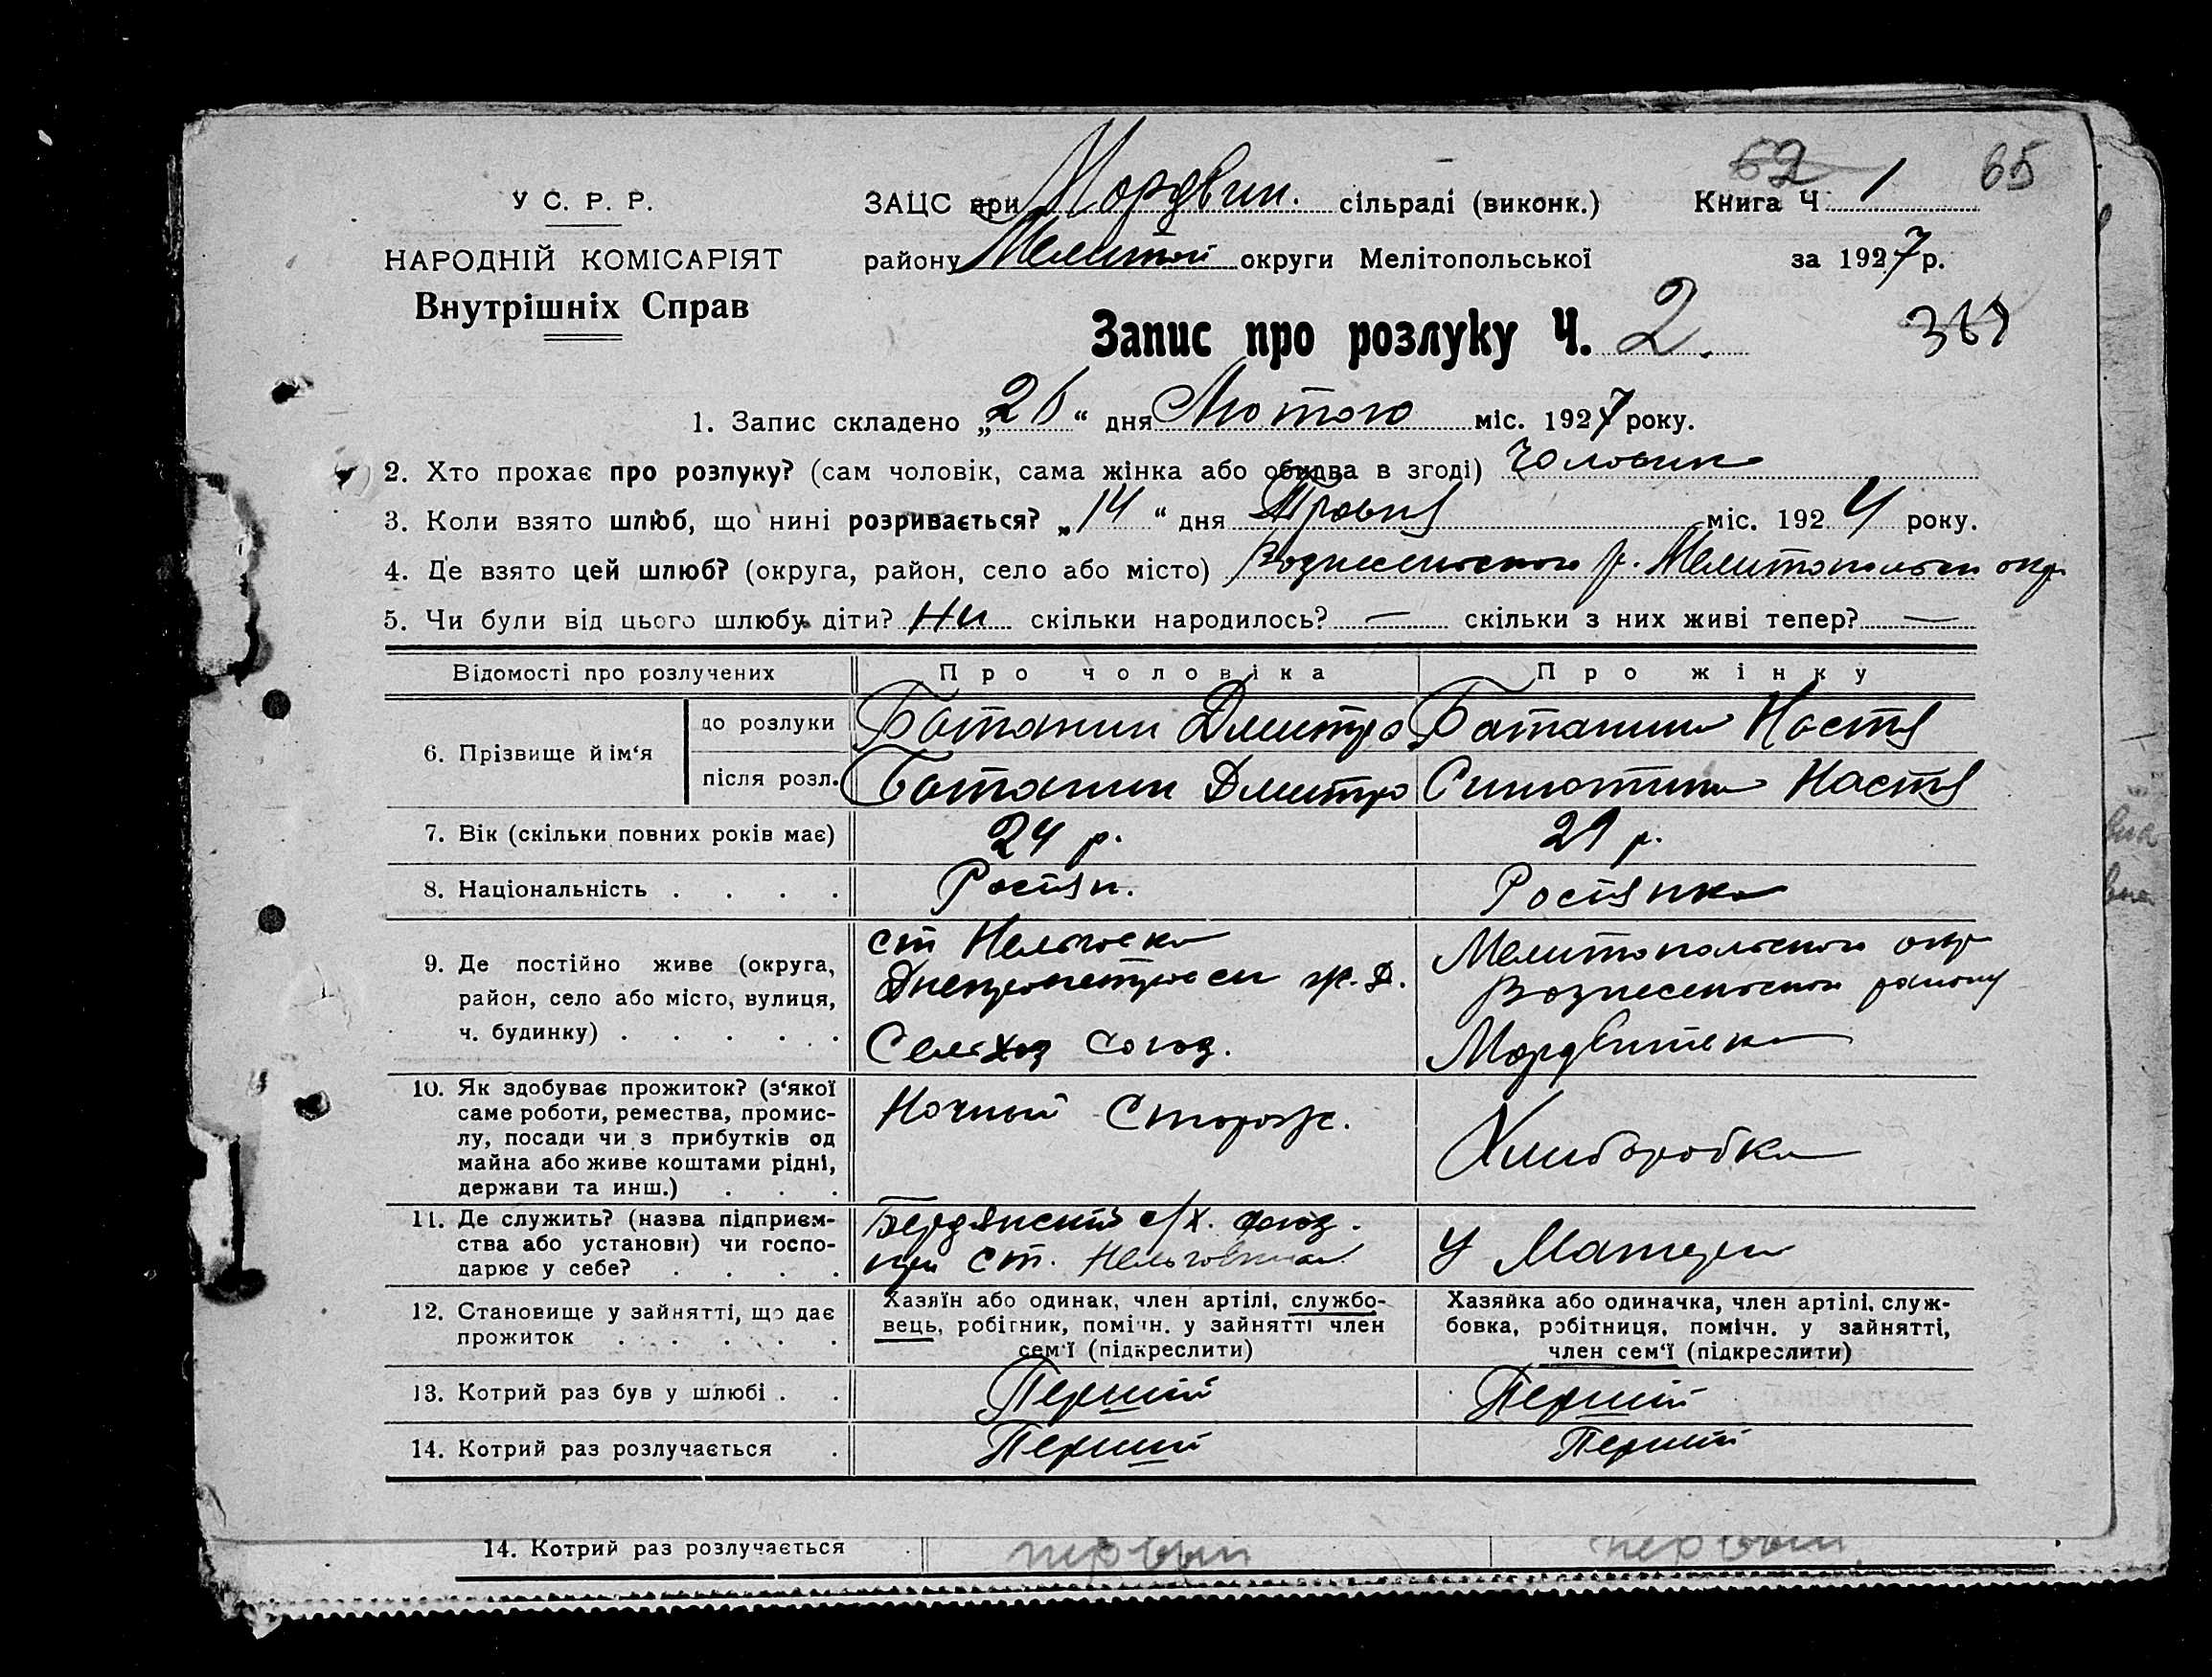 62 1 65
У С. Р. Р.
ЗАЦС при Мордвин. сільраді (виконк.) Книга Ч
НАРОДНІЙ КОМІСАРІЯТ
району округи Мелітопольської за 1927 р.
Внутрішніх Справ
Запис про розлуку Ч. 2.
1. Запис складено „26“ дня Лютого міс. 1927 року.
2. Хто прохає про розлуку? (сам чоловік, сама жінка або обидва в згоді) Чоловик
3. Коли взято шлюб, що нині розривається? „14“ дня Травня міс. 1924 року.
4. Де взято цей шлюб? (округа, район, село або місто) Вознесенського р. Мелитопольськ окр
5. Чи були від цього шлюбу діти? Ни скільки народилось? — скільки з них живі тепер? —
Відомості про розлучених Про чоловіка Про жінку
6. Прізвище й ім‘я до розлуки Батанин Дмитро Батанина Настя
після розл. Батанин Дмитро Настя
7. Вік (скільки повних років має) 24 р. 21 р.
8. Національність . . . . Росіян. Росіянка
9. Де постійно живе (округа, район, село або місто, вулиця, ч. будинку) . . . . .
ст Нельговка
ж. д.
Сельхоз союз.
Мелитопольского окр
Вознесенського району
10. Як здобуває прожиток? (з‘якої саме роботи, ремества, промислу, посади чи з прибутків од майна або живе коштами рідні, держави та инш.) . . .
Ночный Сторож.
Хлиборобка
11. Де служить? (назва підприємства або установи) чи господарює у себе? . . . .
Бердянский с/х. союз.
при ст. Нельговка
У Матери
12. Становище у зайнятті, що дає прожиток . . . . .
Хазяїн або одинак, член артілі, службовець, робітник, помічн. у зайнятті член сем‘ї (підкреслити)
Хазяйка або одиначка, член артілі, службовка, робітниця, помічн. у зайнятті, член сем‘ї (підкреслити)
13. Котрий раз був у шлюбі . . Перший Перший
14. Котрий раз розлучається . Перший Перший
14. Котрий раз розлучається . первый первый